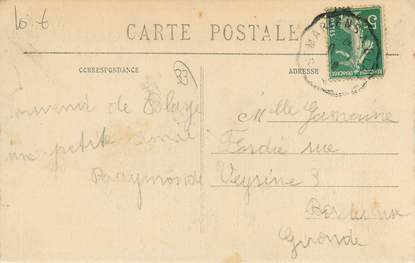 10 t
CARTE POSTALE
CORRESPONDANCE
ADRESSE
33
5
Souvenir de Blaye
une petite amie
Raymonde
Mlle Germaine
rue
Veyrine 8
Bordeaux
Gironde